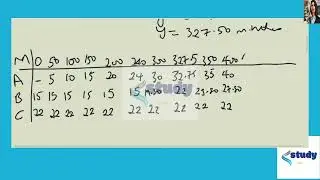 y = 327.50 minutes
M 0 50 100 150 200 240 300 327.5 350 400
A - 5 10 15 20 24 30 32.75 35 40
B 15 15 15 15 15 15 22
C 22 22 22 22 22 22 22 22 22 22
study
study